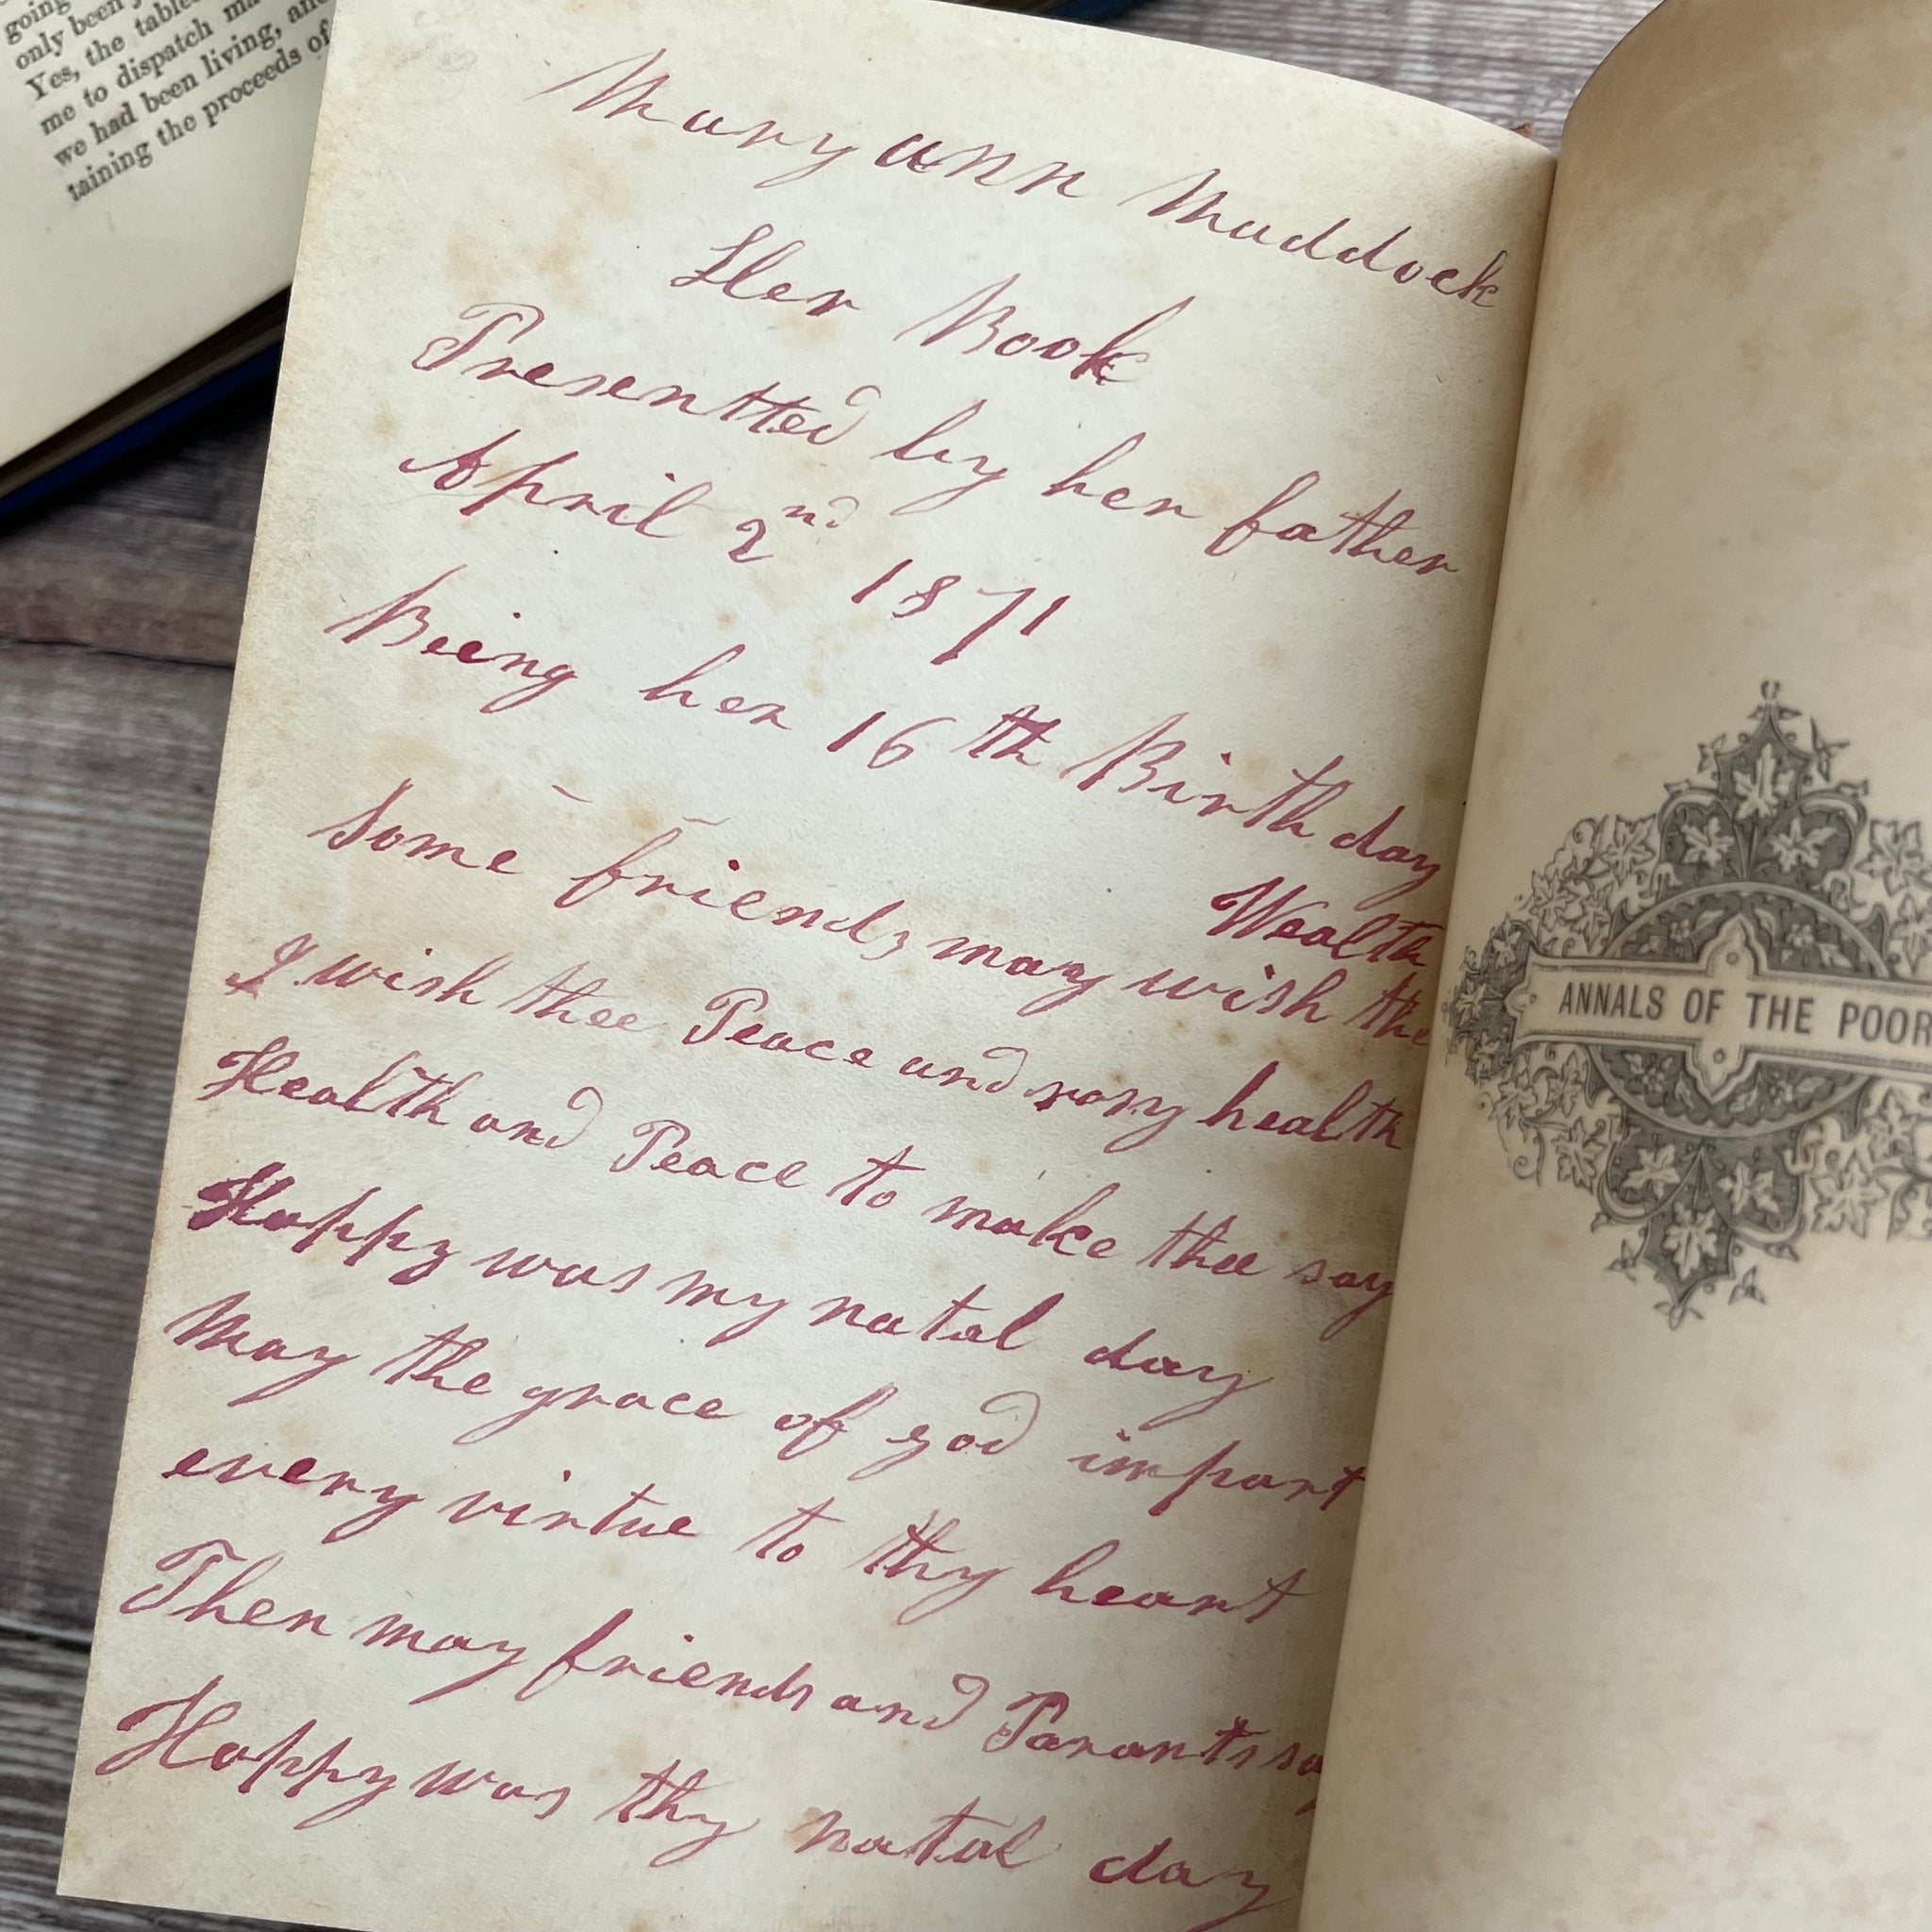 going
only been
Yes, the table
me to dispatch
we had been living, and
taining the proceeds of
Mary ann Muddock
Her Book
Presentted by her father
April 2nd 1871
Being her 16th Birth day
Wealth
Some friends may wish the
I wish thee Peace and rosy health
Health and Peace to make thee say
Happy was my natal day
May the grace of god impart
every virtue to thy heart
Then may friends and Parants say
Happy was thy natal day
ANNALS OF THE POOR